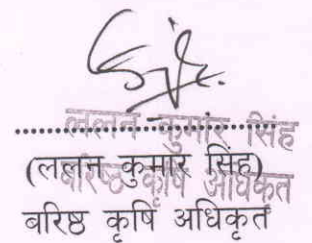 ललन कुमार सिंह
....................................
(ललन कुमार सिंह)
बरिष्ठ कृषि अधिकृत
बरिष्ठ कृषि अधिकृत